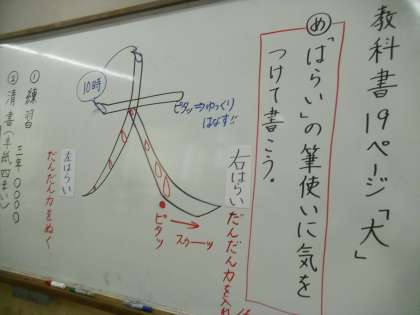 教科書19ページ「大」
め「はらい」の筆使いに気を
つけて書こう。
10時
大
ピタッ→ゆっくり
はなす!!
右はらい
だんだん力を入れ
ピタッ
スゥーッ
左はらい
だんだん力をぬく
① 練習
三年 〇〇〇〇
② 清書(半紙四まい)